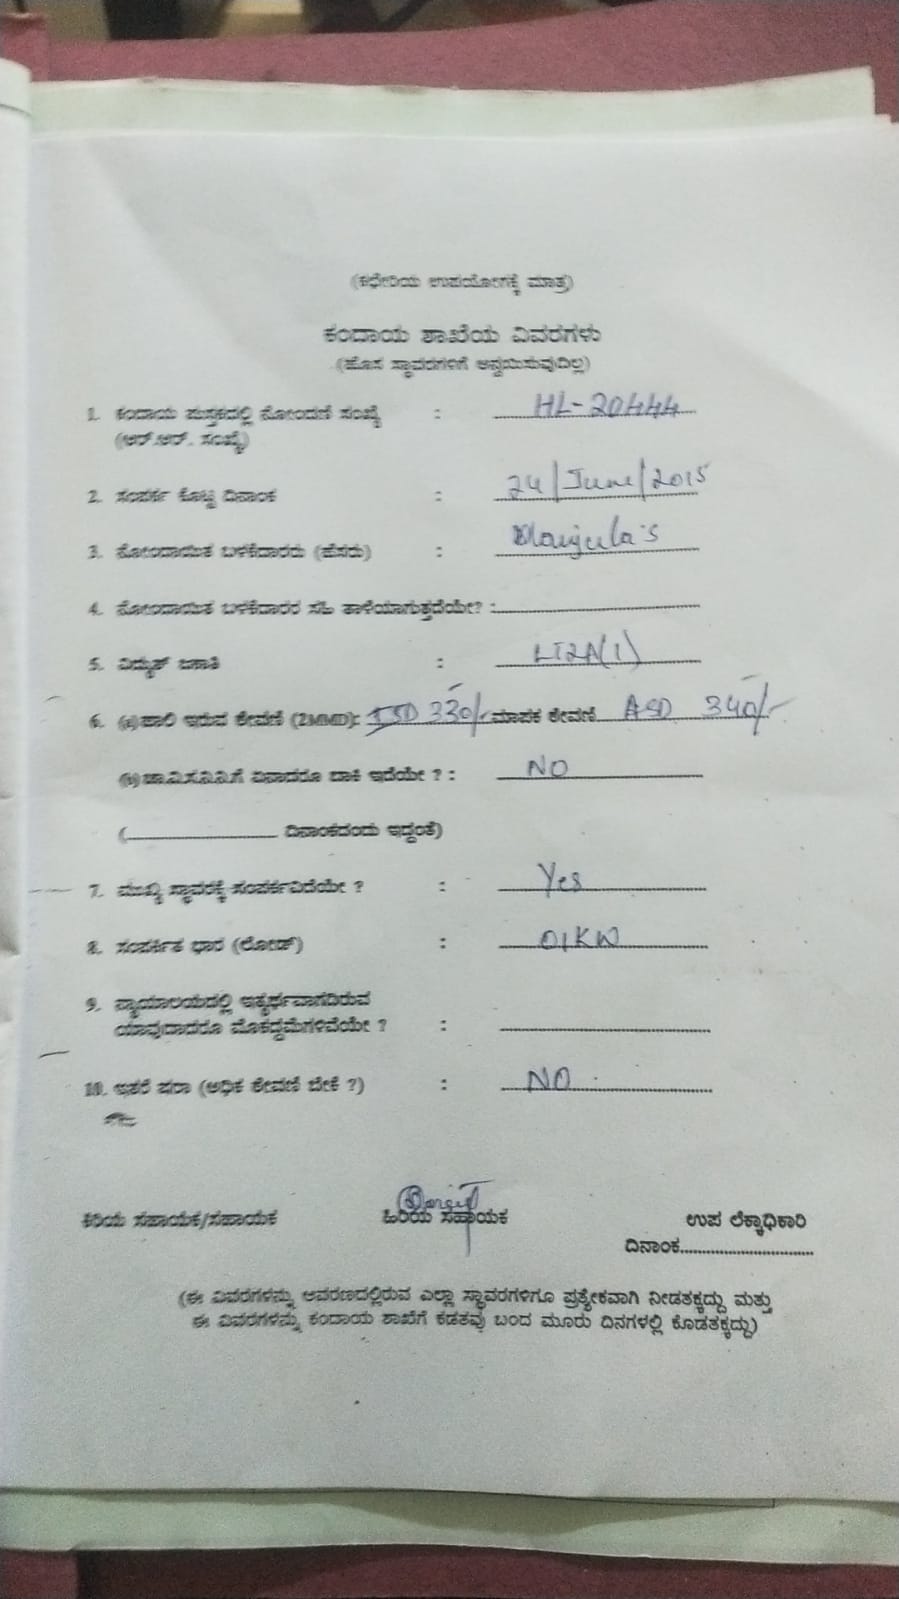 (ಕಛೇರಿಯ ಉಪಯೋಗಕ್ಕೆ ಮಾತ್ರ)
ಕಂದಾಯ ಶಾಖೆಯ ವಿವರಗಳು
(ಹೊಸ ಸ್ಥಾವರಗಳಿಗೆ ಅನ್ವಯಿಸುವುದಿಲ್ಲ)
1. ಕಂದಾಯ ಪುಸ್ತಕದಲ್ಲಿ ನೋಂದಣಿ ಸಂಖ್ಯೆ : HL-20444
(ಆರ್.ಆರ್. ಸಂಖ್ಯೆ)
2. ಸಂಪರ್ಕ ಕೊಟ್ಟ ದಿನಾಂಕ : 24/June/2015
3. ನೋಂದಾಯಿತ ಬಳಕೆದಾರರು (ಹೆಸರು) : Manjula's
4. ನೋಂದಾಯಿತ ಬಳಕೆದಾರರ ಸಹಿ ತಾಳೆಯಾಗುತ್ತದೆಯೇ? :
5. ವಿದ್ಯುತ್ ಜಕಾತಿ : LT2A(1)
6. (a) ಹಾಲಿ ಇರುವ ಠೇವಣಿ (2MMD): ISD 330/- ಮಾಪಕ ಠೇವಣಿ ASD 340/-
(b) ಚಾ.ವಿ.ಸ.ನಿ.ನಿ.ಗೆ ಏನಾದರೂ ಬಾಕಿ ಇದೆಯೇ ? : NO
( ದಿನಾಂಕದಂದು ಇದ್ದಂತೆ)
7. ಮುಖ್ಯ ಸ್ಥಾವರಕ್ಕೆ ಸಂಪರ್ಕವಿದೆಯೇ ? : Yes
8. ಸಂಪರ್ಕಿತ ಭಾರ (ಲೋಡ್) : 01KW
9. ನ್ಯಾಯಾಲಯದಲ್ಲಿ ಇತ್ಯರ್ಥವಾಗದಿರುವ
ಯಾವುದಾದರೂ ಮೊಕದ್ದಮೆಗಳಿವೆಯೇ ? :
10. ಇತರೆ ಷರಾ (ಅಧಿಕ ಠೇವಣಿ ಬೇಕೆ ?) : NO
ಕಿರಿಯ ಸಹಾಯಕ/ಸಹಾಯಕ ಹಿರಿಯ ಸಹಾಯಕ ಉಪ ಲೆಕ್ಕಾಧಿಕಾರಿ
ದಿನಾಂಕ
(ಈ ವಿವರಗಳನ್ನು ಆವರಣದಲ್ಲಿರುವ ಎಲ್ಲಾ ಸ್ಥಾವರಗಳಿಗೂ ಪ್ರತ್ಯೇಕವಾಗಿ ನೀಡತಕ್ಕದ್ದು ಮತ್ತು
ಈ ವಿವರಗಳನ್ನು ಕಂದಾಯ ಶಾಖೆಗೆ ಕಡತವು ಬಂದ ಮೂರು ದಿನಗಳಲ್ಲಿ ಕೊಡತಕ್ಕದ್ದು)